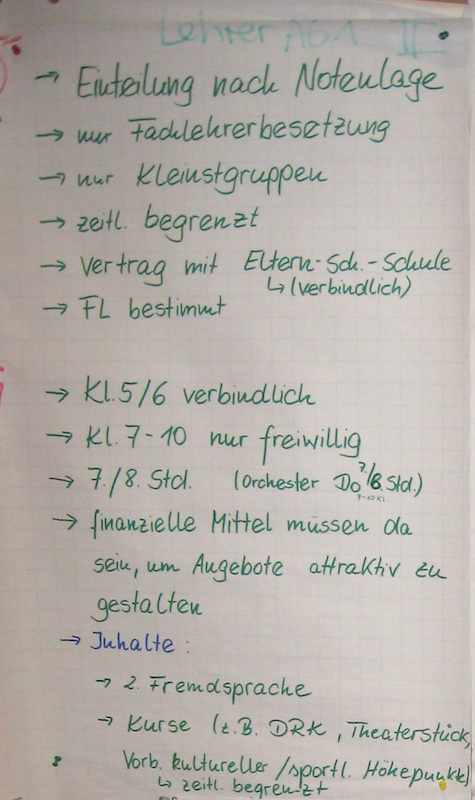 Lehrer AG1 II
→ Einteilung nach Notenlage
→ nur Fachlehrerbesetzung
→ nur Kleinstgruppen
→ zeitl. begrenzt
→ Vertrag mit Eltern-Sch.-Schule
↳ (verbindlich)
→ FL bestimmt
→ Kl. 5/6 verbindlich
→ Kl. 7-10 nur freiwillig
→ 7./8. Std. (Orchester Do 7./8. Std.)
7-10 Kl.
→ finanzielle Mittel müssen da
sein, um Angebote attraktiv zu
gestalten
→ Inhalte:
→ 2. Fremdsprache
→ Kurse (z.B. DRK, Theaterstück,
Vorb. kultureller/sportl. Höhepunkte)
↳ zeitl. begrenzt